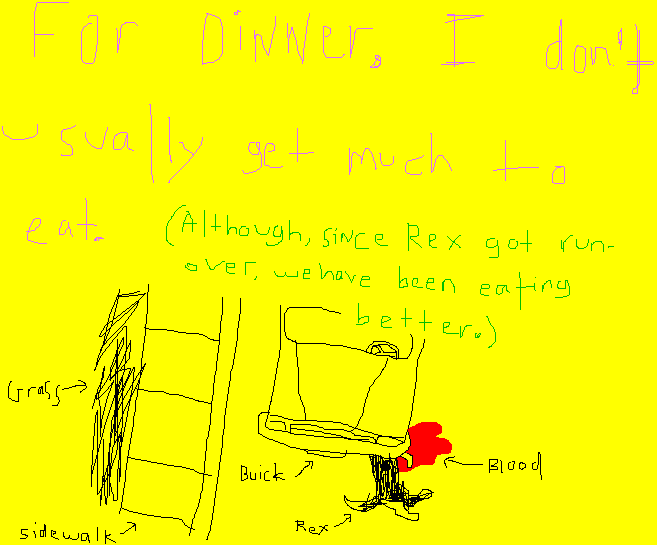 For Dinner. I don't
usually get much to
eat.
(Although, since Rex got run-
over, we have been eating
better.)
Grass
Buick
Blood
Rex
sidewalk